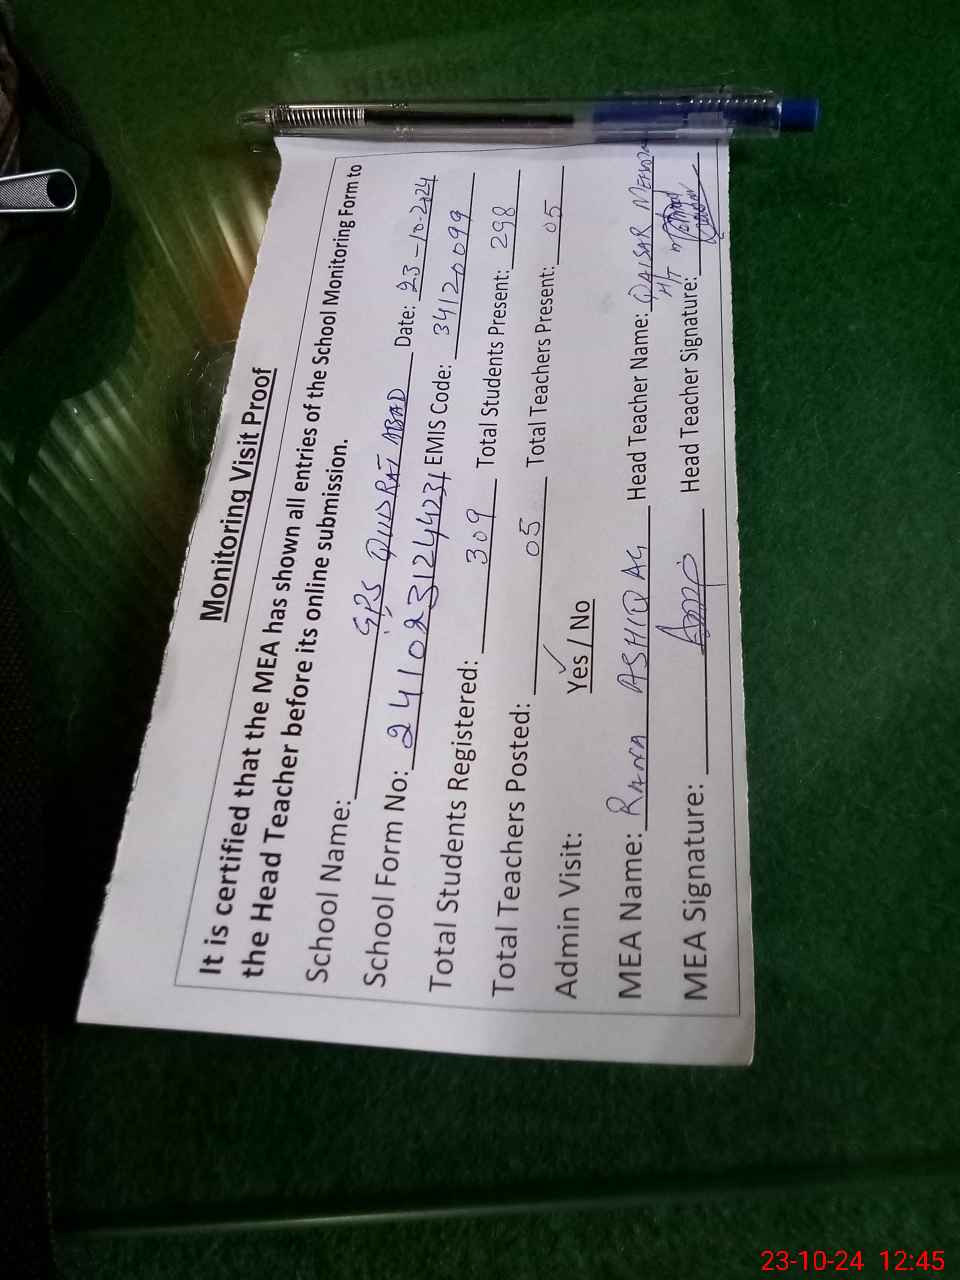 Monitoring Visit Proof
It is certified that the MEA has shown all entries of the School Monitoring Form to
the Head Teacher before its online submission.
School Name: GPS QUDRAT ABAD Date: 23-10-2024
School Form No: 2410231244231 EMIS Code: 34120099
Total Students Registered: 309 Total Students Present: 298
Total Teachers Posted: 05 Total Teachers Present: 05
Admin Visit: Yes / No
MEA Name: RANA ASHFAQ Head Teacher Name: QAISAR
H/T
MEA Signature: Head Teacher Signature:
23-10-24 12:45